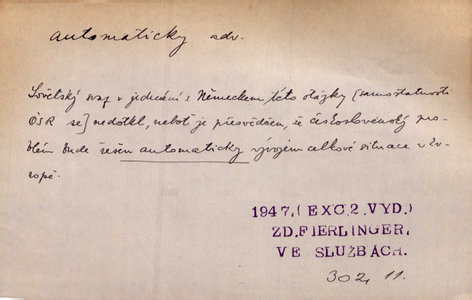 automaticky adv.
Sovětský svaz v jednání s Německem této otázky [samostatnosti
ČSR se] nedotkl, neboť je přesvědčen, že československý pro-
blém bude řešen automaticky vývojem celkové situace v Ev-
ropě.
1947.(EXC.2.VYD.)
ZD.FIERLINGER,
VE SLUŽBÁCH.
302, 11.